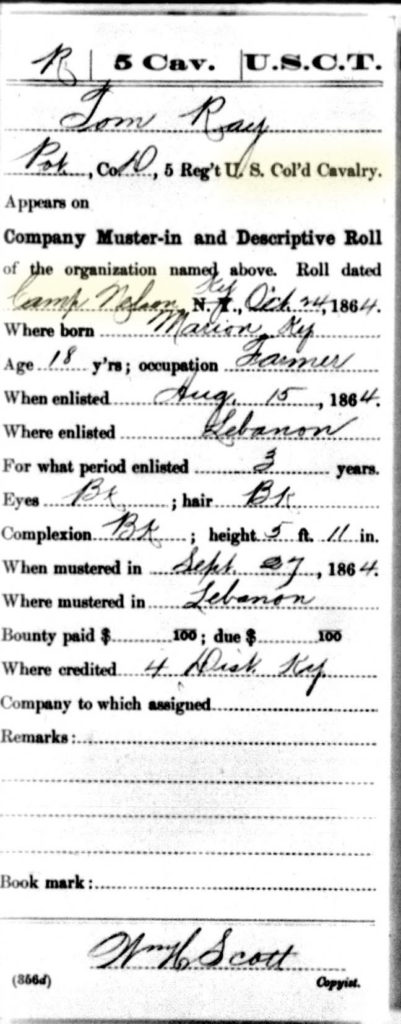 R | 5 Cav. | U.S.C.T.
Tom Ray
Pvt., Co. D, 5 Reg't U. S. Col'd Cavalry.
Appears on
Company Muster-in and Descriptive Roll
of the organization named above. Roll dated
Camp Nelson Ky N. Y., Oct. 24, 1864.
Where born Marion, Ky
Age 18 y'rs; occupation Farmer
When enlisted Aug. 15, 1864.
Where enlisted Lebanon
For what period enlisted 3 years.
Eyes Bk ; hair Bk
Complexion Bk ; height 5 ft. 11 in.
When mustered in Sept. 27, 1864.
Where mustered in Lebanon
Bounty paid $ 100 ; due $ 100
Where credited 4 Dist. Ky
Company to which assigned
Remarks:
Book mark:
Wm H Scott
(356d) Copyist.